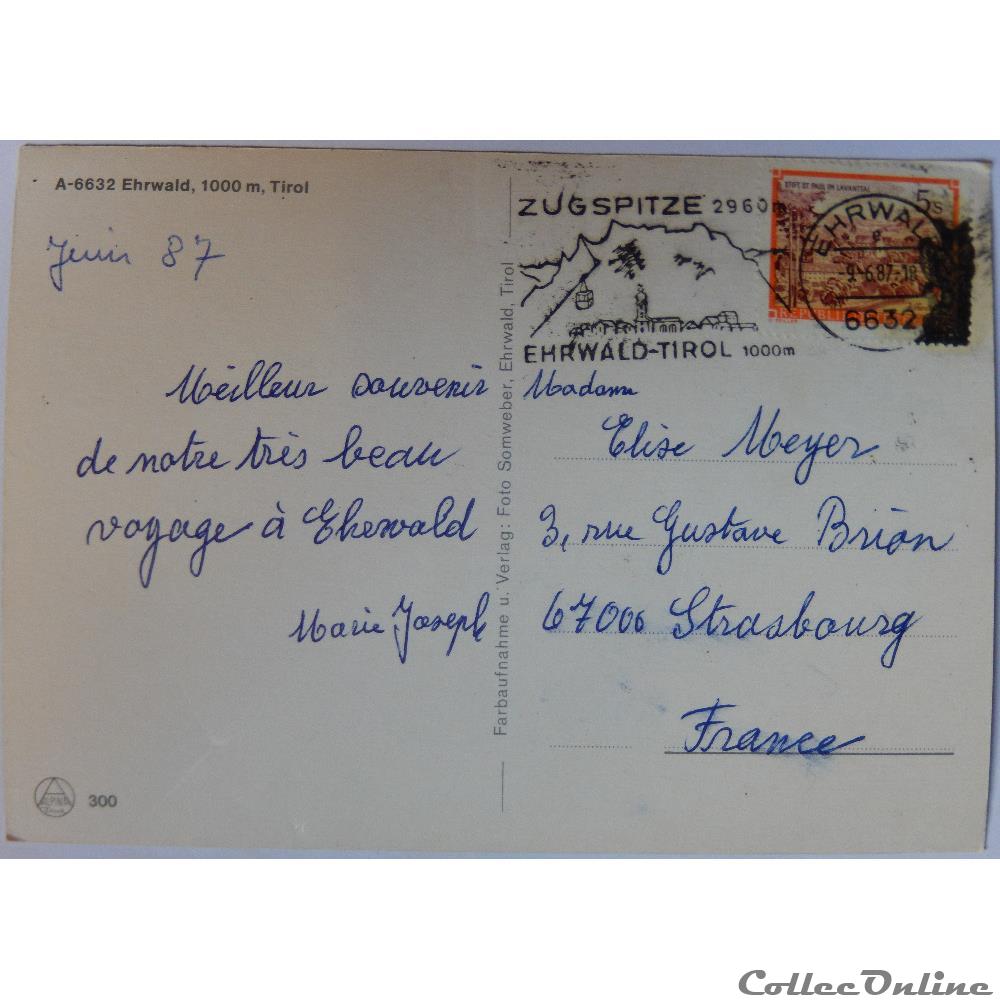 A-6632 Ehrwald, 1000 m, Tirol
Juin 87
Meilleur souvenir
de notre très beau
voyage à Eherwald
Marie Joseph
ALPINA
300
Farbaufnahme u. Verlag: Foto Somweber, Ehrwald, Tirol
ZUGSPITZE 2960m
EHRWALD-TIROL 1000m
STIFT ST. PAUL IM LAVANTTAL
5s
REPUBLI
EHRWALD
-9.-6.87-18
6632
Madame
Elise Meyer
3, rue Gustave Brion
67000 Strasbourg
France
CollecOnline